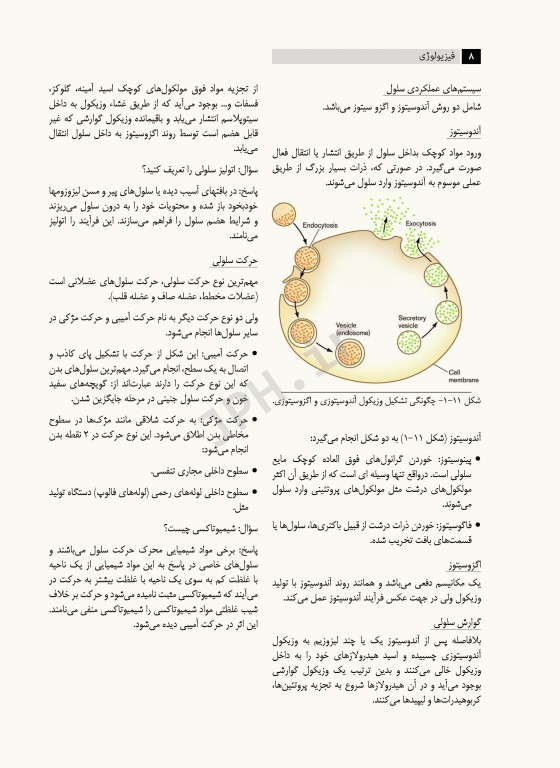 ۸ فیزیولوژی
سیستم‌های عملکردی سلول
شامل دو روش آندوسیتوز و اگزو سیتوز می‌باشد.
آندوسیتوز
ورود مواد کوچک بداخل سلول از طریق انتشار یا انتقال فعال
صورت می‌گیرد. در صورتی که، ذرات بسیار بزرگ از طریق
عملی موسوم به آندوسیتوز وارد سلول می‌شوند.
Endocytosis
Exocytosis
Vesicle
(endosome)
Secretory
vesicle
Cell
membrane
شکل ۱۱-۱- چگونگی تشکیل وزیکول آندوسیتوزی و اگزوسیتوزی.
آندوسیتوز (شکل ۱۱-۱) به دو شکل انجام می‌گیرد:
• پینوسیتوز: خوردن گرانول‌های فوق العاده کوچک مایع
سلولی است. درواقع تنها وسیله ای است که از طریق آن اکثر
مولکول‌های درشت مثل مولکول‌های پروتئینی وارد سلول
می‌شوند.
• فاگوسیتوز: خوردن ذرات درشت از قبیل باکتری‌ها، سلول‌ها یا
قسمت‌های بافت تخریب شده.
اگزوسیتوز
یک مکانیسم دفعی می‌باشد و همانند روند آندوسیتوز با تولید
وزیکول ولی در جهت عکس فرآیند آندوسیتوز عمل می‌کند.
گوارش سلولی
بلافاصله پس از آندوسیتوز یک یا چند لیزوزیم به وزیکول
آندوسیتوزی چسبیده و اسید هیدرولازهای خود را به داخل
وزیکول خالی می‌کنند و بدین ترتیب یک وزیکول گوارشی
بوجود می‌آید و در آن هیدرولازها شروع به تجزیه پروتئین‌ها،
کربوهیدرات‌ها و لیپیدها می‌کنند.
از تجزیه مواد فوق مولکول‌های کوچک اسید آمینه، گلوکز،
فسفات و... بوجود می‌آید که از طریق غشاء وزیکول به داخل
سیتوپلاسم انتشار می‌یابد و باقیمانده وزیکول گوارشی که غیر
قابل هضم است توسط روند اگزوسیتوز به داخل سلول انتقال
می‌یابد.
سؤال: اتولیز سلولی را تعریف کنید؟
پاسخ: در بافتهای آسیب دیده یا سلول‌های پیر و مسن لیزوزومها
خودبخود باز شده و محتویات خود را به درون سلول می‌ریزند
و شرایط هضم سلول را فراهم می‌سازند. این فرآیند را اتولیز
می‌نامند.
حرکت سلولی
مهم‌ترین نوع حرکت سلولی، حرکت سلول‌های عضلانی است
(عضلات مخطط، عضله صاف و عضله قلب).
ولی دو نوع حرکت دیگر به نام حرکت آمیبی و حرکت مژکی در
سایر سلول‌ها انجام می‌شود.
• حرکت آمیبی: این شکل از حرکت با تشکیل پای کاذب و
اتصال به یک سطح، انجام می‌گیرد. مهم‌ترین سلول‌های بدن
که این نوع حرکت را دارند عبارت‌اند از: گویچه‌های سفید
خون و حرکت سلول جنینی در مرحله جایگزین شدن.
• حرکت مژکی: به حرکت شلاقی مانند مژک‌ها در سطوح
مخاطی بدن اطلاق می‌شود. این نوع حرکت در ۲ نقطه بدن
انجام می‌شود:
• سطوح داخلی مجاری تنفسی.
• سطوح داخلی لوله‌های رحمی (لوله‌های فالوپ) دستگاه تولید
مثل.
سؤال: شیمیوتاکسی چیست؟
پاسخ: برخی مواد شیمیایی محرک حرکت سلول می‌باشند و
سلول‌های خاصی در پاسخ به این مواد شیمیایی از یک ناحیه
با غلظت کم به سوی یک ناحیه با غلظت بیشتر به حرکت در
می‌آیند که شیمیوتاکسی مثبت نامیده می‌شود و حرکت بر خلاف
شیب غلظتی مواد شیمیوتاکسی را شیمیوتاکسی منفی می‌نامند.
این اثر در حرکت آمیبی دیده می‌شود.